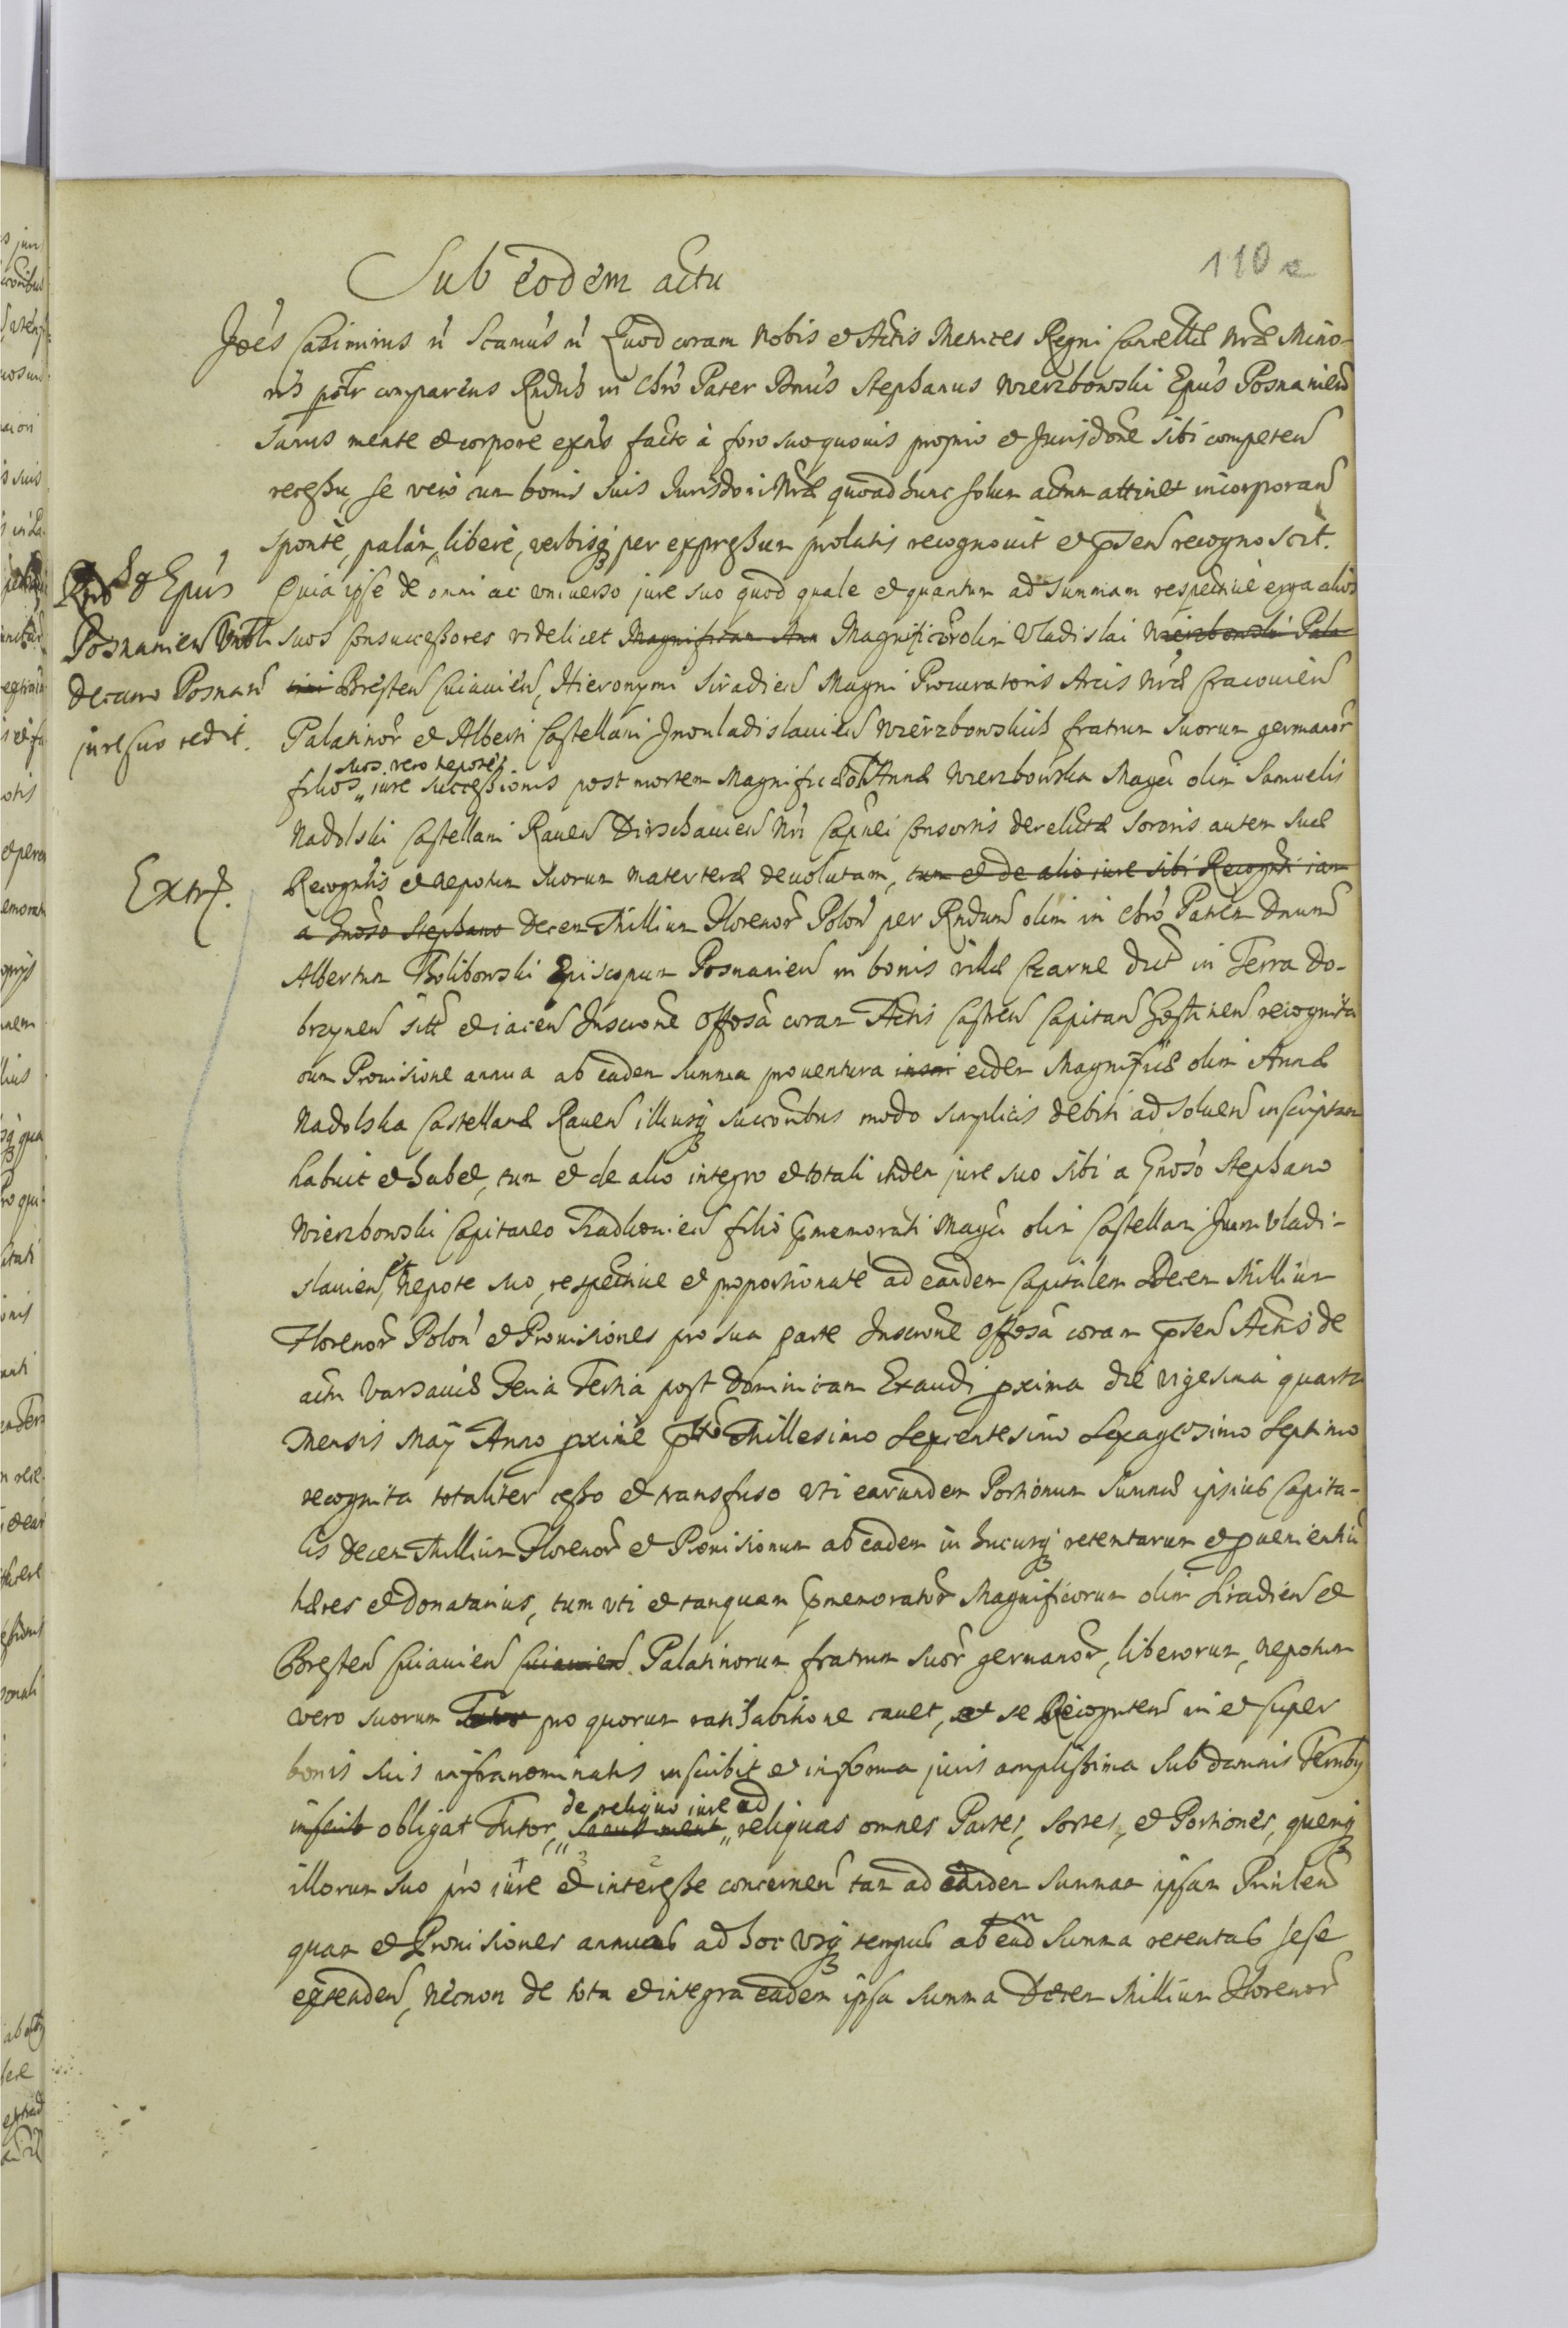 110 a
Sub eodem actu
Joes Casimirus n Scimus n Quod coram Nobis et Actis Metrices Regni Cancelle nræ Mino-
ris psotr comparens Rndus in Chro Pater Dnus Stephanus Wierzbowski Epus Posnanien
Sanus mente et corpore exns facto à foro suo quovis proprio et Jurisdone sibi competen
recessu, se vero cum bonis suis Jurisdoni Nræ quoad hunc solum actum attinet incorporan
sponte, palam, libere, verbisq per expressum prolatis recognovit et psen recognoscit.
Quia ipse de omni ac universo jure suo quod quale et quantum ad summam respective erga alios
suos Consuccessores videlicet Magnificam Ann Magnificor olim Vladislai Wierzbowski Pala
tini Bresten Cuiavien, Hieronymi Siradien Magni Procuratoris Arcis Nræ Cracovien
Palatinor et Alberti Castellani Jnouladislavien Wierzbowskich fratrum suorum germanor
suos vero nepotes
filios, iure successionis post mortem Magnificæ olim Annæ Wierzbowska Magci olim Samuelis
Nadolski Castellani Raven Dirschavien Nri Capnei Consortis derelictæ sororis autem suæ
Recogntis et nepotum suorum materteræ devolutam, tum et de alio iure sibi Recognti iam
a Gnoso Stephano Decem Millium Florenor Polon per Rndum olim in Chro Patrem Dnum
Albertum Tholibowski Episcopum Posnanien in bonis villæ Czarne dict in Terra Do-
brzynen sitt et iacen Inscrone Offosa coram Actis Castren Capitan Gostinen recognita
cum Provisione annua ab eadem summa proventura insori eidem Magnificæ olim Annæ
Nadolska Castellanæ Raven illiusq succoribus modo simplicis debiti ad solven inscriptam
habuit et habet, tum et de alio integro et totali itidem jure suo sibi a Gnoso Stephano
Wierzbowski Capitaneo Radlovien filio pmemorati Magci olim Castellani Junivladi-
slavien, et Nepote suo, respective et proportionate ad eandem Capitalem Decem Millium
Florenor Polon et Provisiones pro sua parte Inscrone Offosa coram psen Actis de
actu Varsaviæ Feria Tertia post Dominicam Exaudi pxima die vigesima quarta
Mensis Maij Anno pxime ptto Millesimo Sexcentesimo Sexagesimo Septimo
recognita totaliter cesso et transfuso uti earundem Portionum summæ ipsius Capita-
lis Decem Millium Florenor et Provisionum ab eadem in hucusq retentarum et pvenientiu
hæres et donatarius, tum uti et tanquam pmemorator Magnificorum olim Siradien et
Bresten Cuiavien Cuiavien Palatinorum fratrum suor germanor, liberorum, nepotum
vero suorum Tutor pro quorum ratihabitione cavet, et se Recognten in et super
bonis suis infranominatis inscribit et in forma juris amplissima sub damnis Ternby
de reliquo iure ad
inscrib obligat Tutor, reliquas omnes Partes, Sortes, et Portiones, quemq
illorum suo pro iure et interesse concernen tam ad eandem summam ipsam Prinlen
quam et Provisiones annuas ad hoc usq tempus ab ead summa retentas sese
extenden, necnon de tota et integra eadem ipsa summa Decem Millium Florenor
Rnds Epus
Posnanien Vnbli
Decano Posnan
jure suo cedit.
Extr.